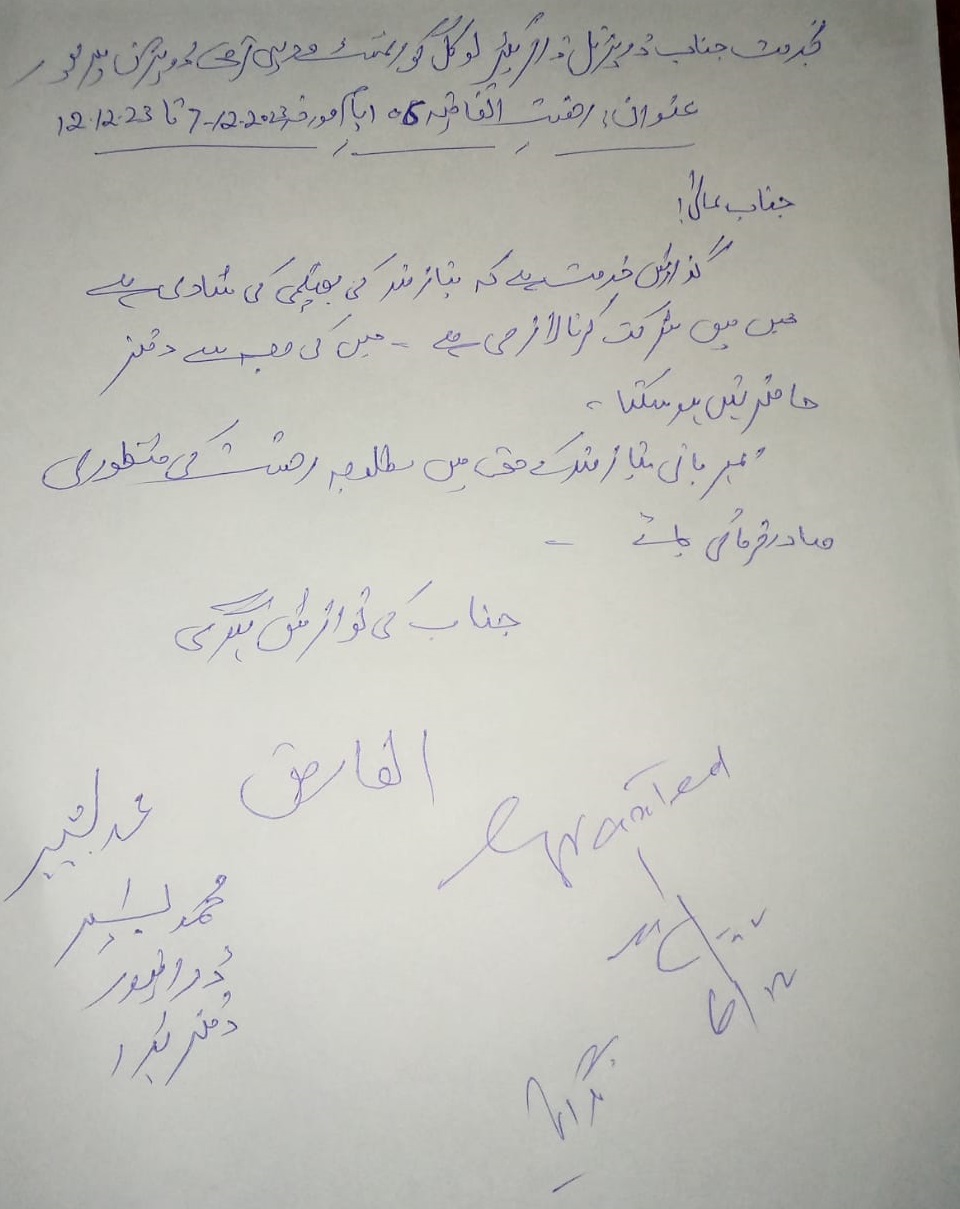 بخدمت جناب ڈویژنل ڈائریکٹر لوکل گورنمنٹ و دیہی ترقی ڈویژن میرپور
عنوان: رخصت اتفاقیہ 06 ایام مورخہ 7-12-2023 تا 12.12.23
جناب عالی!
گذارش خدمت ہے کہ نیاز مند کی بھتیجی کی شادی ہے
جس میں شرکت کرنا لازمی ہے ۔ جس کی وجہ سے دفتر
حاضر نہیں ہو سکتا ۔
مہربانی نیاز مند کے حق میں مطلوبہ رخصت کی منظوری
صادر فرمائی جائے ۔
جناب کی نوازش ہوگی
العارض
محمد بشیر
Granted
محمد بشیر
ڈرائیور
دفتر ہذا
6/12